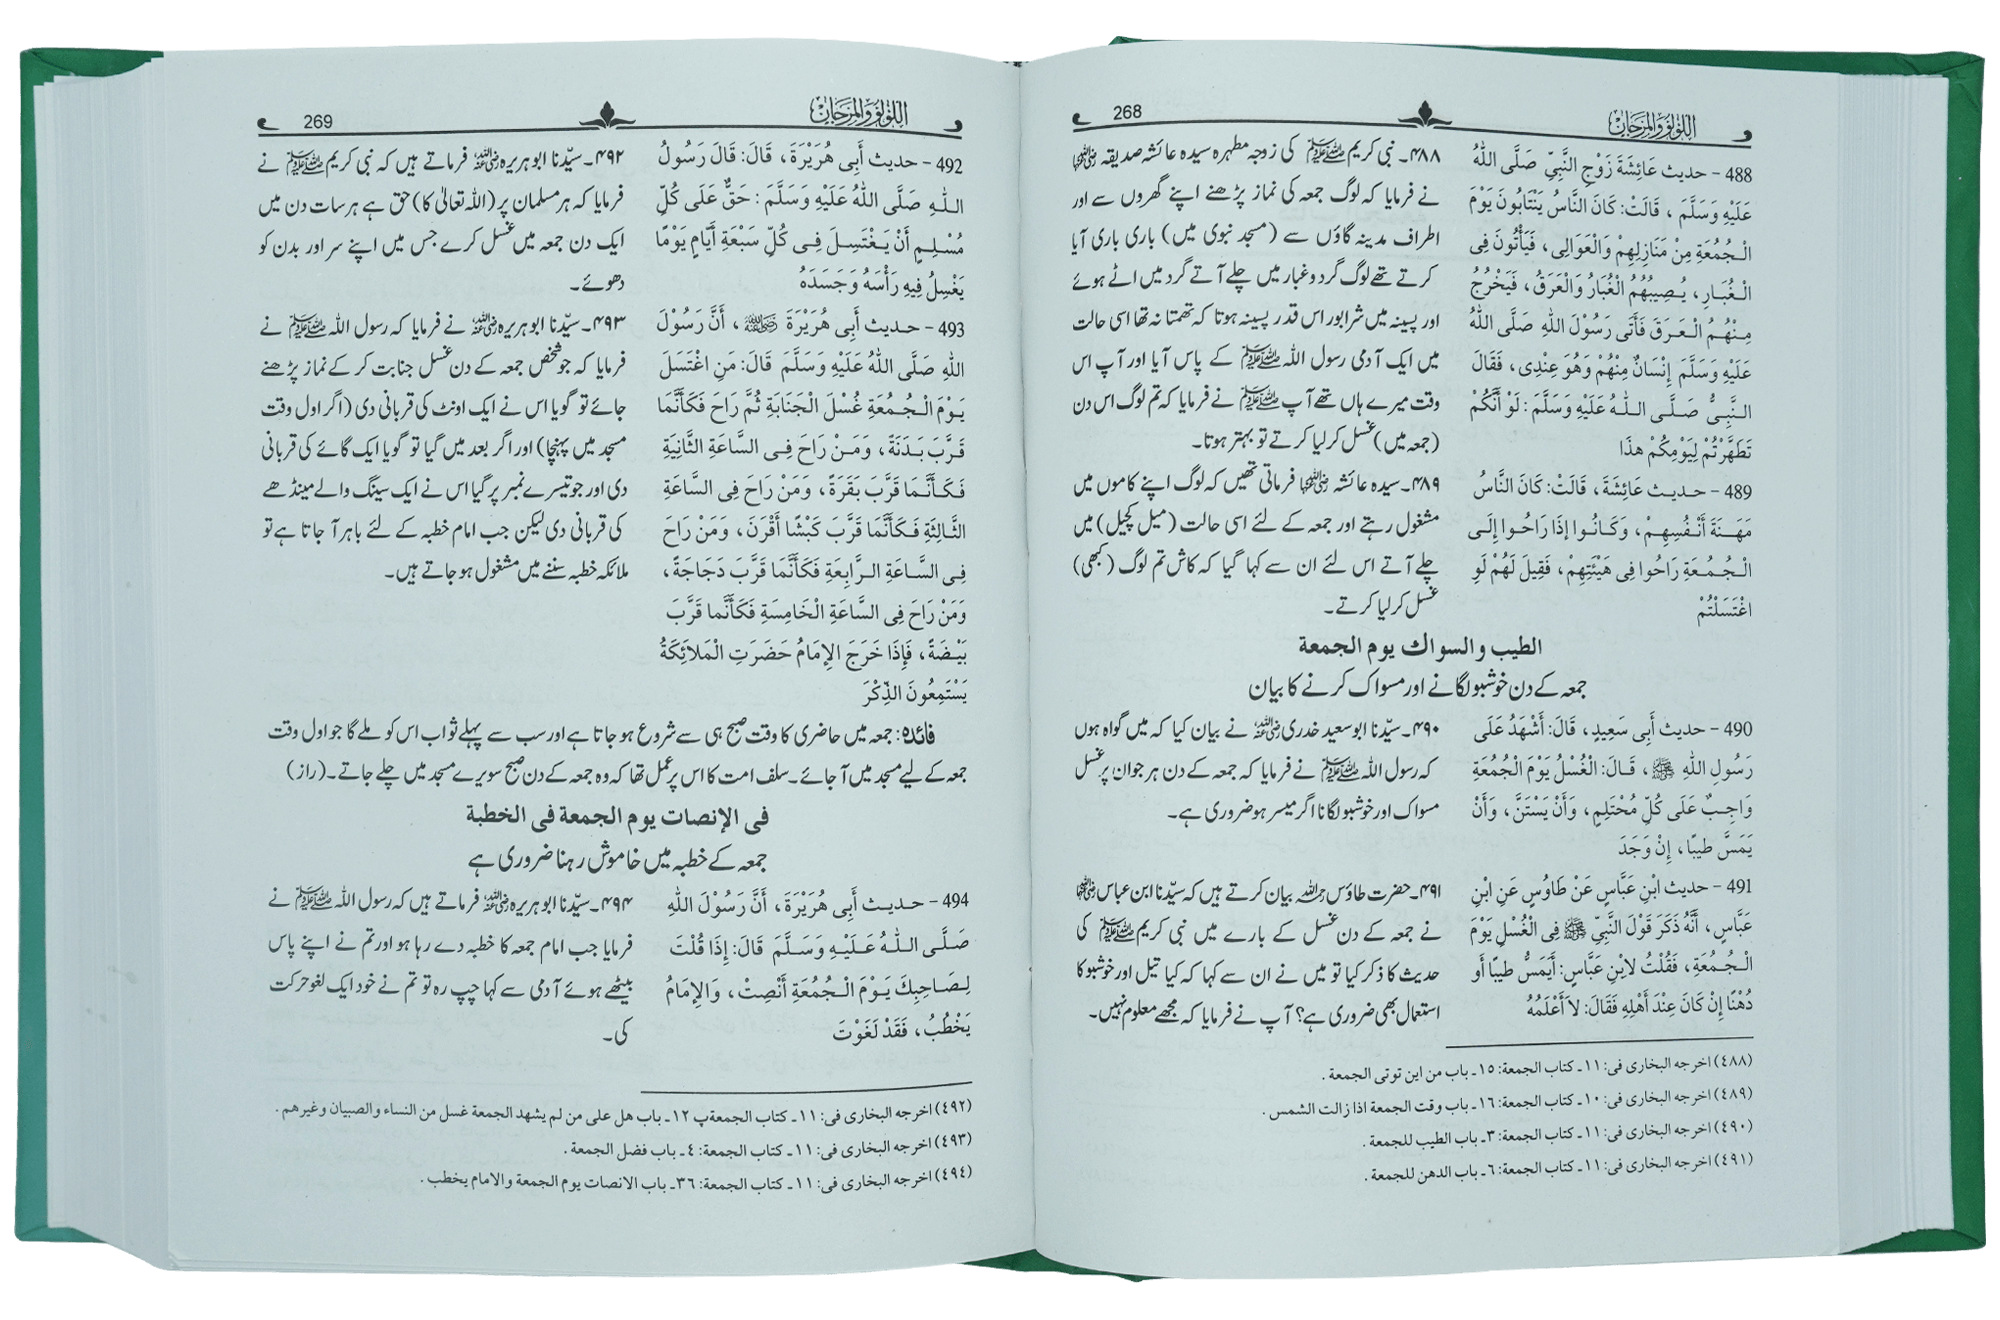 268
اللؤلؤ والمرجان
488 - حديث عَائِشَةَ زَوْجِ النَّبِيِّ صَلَّى اللهُ
عَلَيْهِ وَسَلَّمَ ، قَالَتْ: كَانَ النَّاسُ يَنْتَابُونَ يَوْمَ
الْجُمُعَةِ مِنْ مَنَازِلِهِمْ وَالْعَوَالِي، فَيَأْتُونَ فِي
الْغُبَارِ، يُصِيبُهُمُ الْغُبَارُ وَالْعَرَقُ، فَيَخْرُجُ
مِنْهُمُ الْعَرَقَ فَأَتَى رَسُوْلَ اللهِ صَلَّى اللهُ
عَلَيْهِ وَسَلَّمَ إِنْسَانٌ مِنْهُمْ وَهُوَ عِنْدِي، فَقَالَ
النَّبِيُّ صَلَّى اللهُ عَلَيْهِ وَسَلَّمَ: لَوْ أَنَّكُمْ
تَطَهَّرْتُمْ لِيَوْمِكُمْ هذَا
489 - حديث عَائِشَةَ، قَالَتْ: كَانَ النَّاسُ
مَهَنَةَ أَنْفُسِهِمْ، وَكَانُوا إِذَا رَاحُوا إِلَى
الْجُمُعَةِ رَاحُوا فِي هَيْئَتِهِمْ، فَقِيلَ لَهُمْ لَوِ
اغْتَسَلْتُمْ
۴۸۸۔ نبی کریم ﷺ کی زوجہ مطہرہ سیدہ عائشہ صدیقہ رضی اللہ عنہا
نے فرمایا کہ لوگ جمعہ کی نماز پڑھنے اپنے گھروں سے اور
اطراف مدینہ گاؤں سے (مسجد نبوی میں) باری باری آیا
کرتے تھے لوگ گرد و غبار میں چلے آتے گرد میں اٹے ہوئے
اور پسینہ میں شرابور اس قدر پسینہ ہوتا کہ تھمتا نہ تھا اسی حالت
میں ایک آدمی رسول اللہ ﷺ کے پاس آیا اور آپ اس
وقت میرے ہاں تھے آپ ﷺ نے فرمایا کہ تم لوگ اس دن
(جمعہ میں) غسل کر لیا کرتے تو بہتر ہوتا۔
۴۸۹۔ سیدہ عائشہ رضی اللہ عنہا فرماتی تھیں کہ لوگ اپنے کاموں میں
مشغول رہتے اور جمعہ کے لئے اسی حالت (میل کچیل) میں
چلے آتے اس لئے ان سے کہا گیا کہ کاش تم لوگ (کبھی)
غسل کر لیا کرتے۔
الطيب والسواك يوم الجمعة
جمعہ کے دن خوشبو لگانے اور مسواک کرنے کا بیان
490 - حديث أَبِي سَعِيدٍ، قَالَ: أَشْهَدُ عَلَى
رَسُولِ اللهِ ﷺ، قَالَ: الْغُسْلُ يَوْمَ الْجُمُعَةِ
وَاجِبٌ عَلَى كُلِّ مُحْتَلِمٍ، وَأَنْ يَسْتَنَّ، وَأَنْ
يَمَسَّ طِيبًا، إِنْ وَجَدَ
491 - حديث ابْنِ عَبَّاسٍ عَنْ طَاوُسٍ عَنِ ابْنِ
عَبَّاسٍ، أَنَّهُ ذَكَرَ قَوْلَ النَّبِيِّ ﷺ فِي الْغُسْلِ يَوْمَ
الْجُمُعَةِ، فَقُلْتُ لِابْنِ عَبَّاسٍ: أَيَمَسُّ طِيبًا أَو
دُهْنًا إِنْ كَانَ عِنْدَ أَهْلِهِ فَقَالَ: لاَ أَعْلَمُهُ
۴۹۰۔ سیّدنا ابو سعید خدری رضی اللہ عنہ نے بیان کیا کہ میں گواہ ہوں
کہ رسول اللہ ﷺ نے فرمایا کہ جمعہ کے دن ہر جوان پر غسل
مسواک اور خوشبو لگانا اگر میسر ہو ضروری ہے۔
۴۹۱۔ حضرت طاؤس رحمہ اللہ بیان کرتے ہیں کہ سیّدنا ابن عباس رضی اللہ عنہما
نے جمعہ کے دن غسل کے بارے میں نبی کریم ﷺ کی
حدیث کا ذکر کیا تو میں نے ان سے کہا کہ کیا تیل اور خوشبو کا
استعمال بھی ضروری ہے؟ آپ نے فرمایا کہ مجھے معلوم نہیں۔
(٤٨٨) اخرجه البخاری فی: ١١۔ کتاب الجمعة: ١٥۔ باب من این توتی الجمعة .
(٤٨٩) اخرجه البخاری فی: ١٠۔ کتاب الجمعة: ١٦۔ باب وقت الجمعة اذا زالت الشمس .
(٤٩٠) اخرجه البخاری فی: ١١۔ کتاب الجمعة: ٣۔ باب الطیب للجمعة .
(٤٩١) اخرجه البخاری فی: ١١۔ کتاب الجمعة: ٦۔ باب الدهن للجمعة .
269
اللؤلؤ والمرجان
492 - حديث أَبِي هُرَيْرَةَ، قَالَ: قَالَ رَسُولُ
اللهِ صَلَّى اللهُ عَلَيْهِ وَسَلَّمَ: حَقٌّ عَلَى كُلِّ
مُسْلِمٍ أَنْ يَغْتَسِلَ فِي كُلِّ سَبْعَةِ أَيَّامٍ يَوْمًا
يَغْسِلُ فِيهِ رَأْسَهُ وَجَسَدَهُ
493 - حديث أَبِي هُرَيْرَةَ رضی اللہ عنہ، أَنَّ رَسُوْلَ
اللهِ صَلَّى اللهُ عَلَيْهِ وَسَلَّمَ قَالَ: مَنِ اغْتَسَلَ
يَوْمَ الْجُمُعَةِ غُسْلَ الْجَنَابَةِ ثُمَّ رَاحَ فَكَأَنَّمَا
قَرَّبَ بَدَنَةً، وَمَنْ رَاحَ فِي السَّاعَةِ الثَّانِيَةِ
فَكَأَنَّمَا قَرَّبَ بَقَرَةً، وَمَنْ رَاحَ فِي السَّاعَةِ
الثَّالِثَةِ فَكَأَنَّمَا قَرَّبَ كَبْشًا أَقْرَنَ، وَمَنْ رَاحَ
فِي السَّاعَةِ الرَّابِعَةِ فَكَأَنَّمَا قَرَّبَ دَجَاجَةً،
وَمَنْ رَاحَ فِي السَّاعَةِ الْخَامِسَةِ فَكَأَنَّما قَرَّبَ
بَيْضَةً، فَإِذَا خَرَجَ الإِمَامُ حَضَرَتِ الْمَلائِكَةُ
يَسْتَمِعُونَ الذِّكْرَ
۴۹۲۔ سیّدنا ابو ہریرہ رضی اللہ عنہ فرماتے ہیں کہ نبی کریم ﷺ نے
فرمایا کہ ہر مسلمان پر (اللہ تعالیٰ کا) حق ہے ہر سات دن میں
ایک دن جمعہ میں غسل کرے جس میں اپنے سر اور بدن کو
دھوئے۔
۴۹۳۔ سیّدنا ابو ہریرہ رضی اللہ عنہ نے فرمایا کہ رسول اللہ ﷺ نے
فرمایا کہ جو شخص جمعہ کے دن غسل جنابت کر کے نماز پڑھنے
جائے تو گویا اس نے ایک اونٹ کی قربانی دی (اگر اول وقت
مسجد میں پہنچا) اور اگر بعد میں گیا تو گویا ایک گائے کی قربانی
دی اور جو تیسرے نمبر پر گیا اس نے ایک سینگ والے مینڈھے
کی قربانی دی لیکن جب امام خطبہ کے لئے باہر آ جاتا ہے تو
ملائکہ خطبہ سننے میں مشغول ہو جاتے ہیں۔
فائدہ: جمعہ میں حاضری کا وقت صبح ہی سے شروع ہو جاتا ہے اور سب سے پہلے ثواب اس کو ملے گا جو اول وقت
جمعہ کے لیے مسجد میں آ جائے۔ سلف امت کا اس پر عمل تھا کہ وہ جمعہ کے دن صبح سویرے مسجد میں چلے جاتے۔ (راز)
في الإنصات يوم الجمعة في الخطبة
جمعہ کے خطبہ میں خاموش رہنا ضروری ہے
494 - حديث أَبِي هُرَيْرَةَ، أَنَّ رَسُوْلَ اللهِ
صَلَّى اللهُ عَلَيْهِ وَسَلَّمَ قَالَ: إِذَا قُلْتَ
لِصَاحِبِكَ يَوْمَ الْجُمُعَةِ أَنْصِتْ، وَالإِمَامُ
يَخْطُبُ، فَقَدْ لَغَوْتَ
۴۹۴۔ سیّدنا ابو ہریرہ رضی اللہ عنہ فرماتے ہیں کہ رسول اللہ ﷺ نے
فرمایا جب امام جمعہ کا خطبہ دے رہا ہو اور تم نے اپنے پاس
بیٹھے ہوئے آدمی سے کہا چپ رہ تو تم نے خود ایک لغو حرکت
کی۔
(٤٩٢) اخرجه البخاری فی: ١١۔ کتاب الجمعة پ ١٢۔ باب هل علی من لم یشهد الجمعة غسل من النساء والصبیان وغیرهم .
(٤٩٣) اخرجه البخاری فی: ١١۔ کتاب الجمعة: ٤۔ باب فضل الجمعة .
(٤٩٤) اخرجه البخاری فی: ١١۔ کتاب الجمعة: ٣٦۔ باب الانصات یوم الجمعة والامام یخطب .